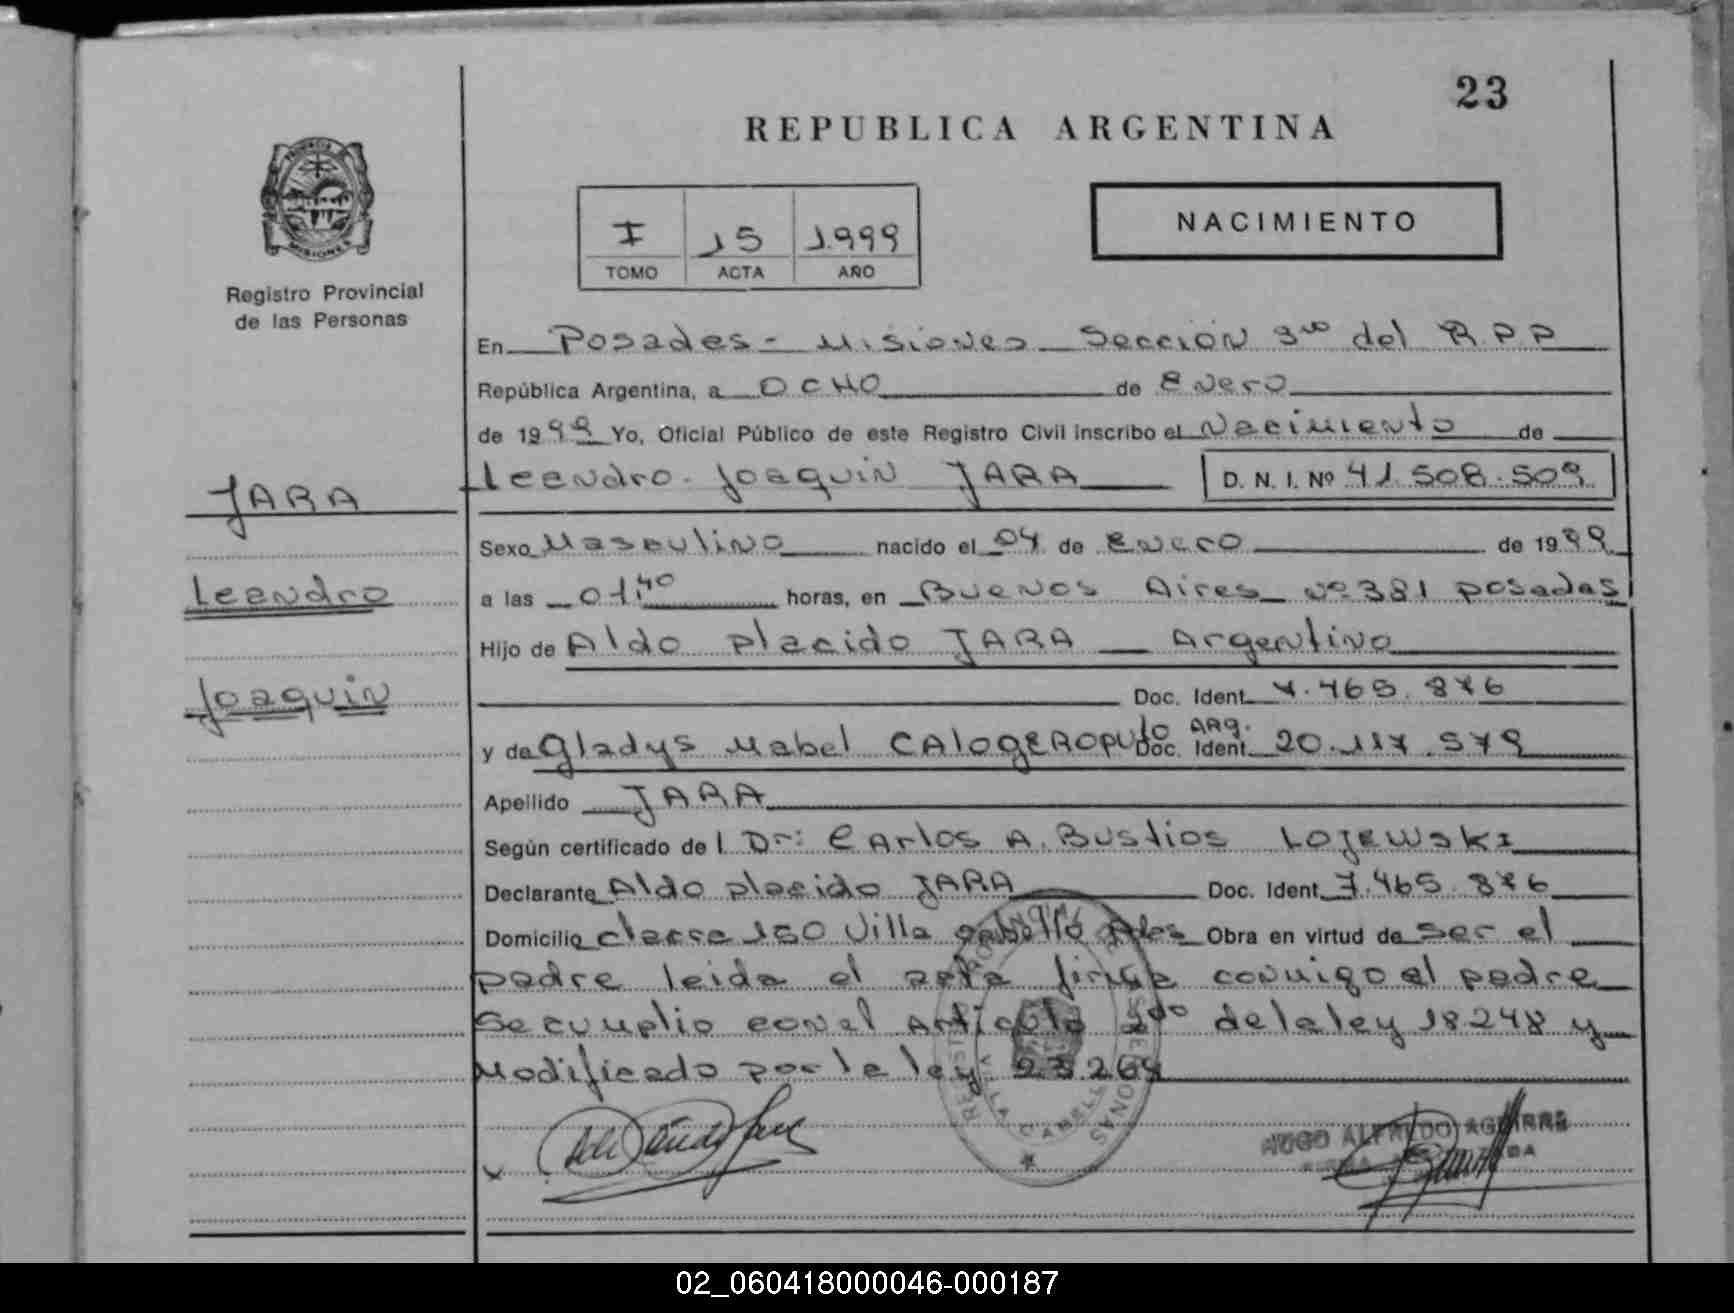 23
REPUBLICA ARGENTINA
PROVINCIA
MISIONES
Registro Provincial
de las Personas
I 15 1.999
TOMO ACTA AÑO
NACIMIENTO
En Posadas - Misiones Sección 3ra del R.P.P
República Argentina, a OCHO de Enero
de 1999 Yo, Oficial Público de este Registro Civil inscribo el Nacimiento de
Leandro Joaquin JARA D. N. I. Nº 41.508.509
JARA
Leandro
Joaquin
Sexo Masculino nacido el 04 de Enero de 1999
a las 01:40 horas, en Buenos Aires Nº 381 posadas
Hijo de Aldo placido JARA Argentino
Doc. Ident. 7.465.876
y de Gladys Mabel CAlogeROpulo ARg. Doc. Ident. 20.117.579
Apellido JARA
Según certificado de l Dr: CArlos A. Bustios LOJEWSKI
Declarante Aldo placido JARA Doc. Ident. 7.465.876
Domicilio 150 Villa Obra en virtud de ser el
padre leida el acta firma conmigo el padre
se cumplio con el Articulo 2do de la ley 18248 y
Modificado por la ley 23.264
HUGO ALFREDO AGUIRRE
02_060418000046-000187